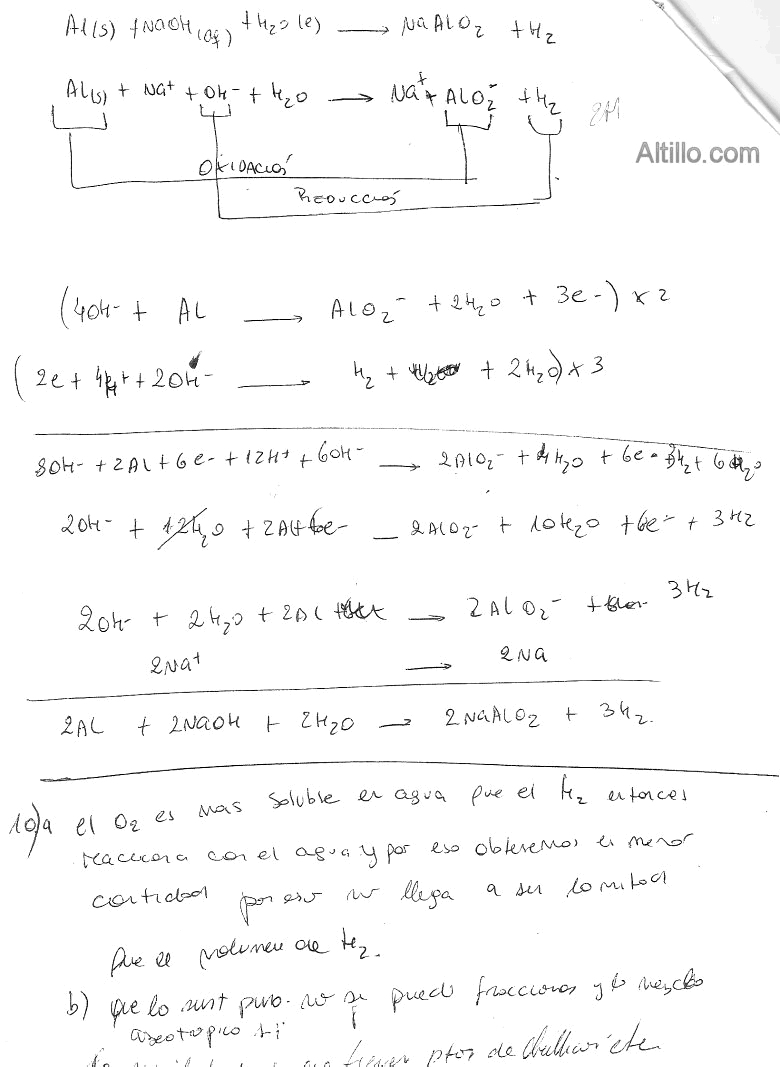 Al(s) + NaOH(aq) + H2O(l) → NaAlO2 + H2
Al(s) + Na+ + OH- + H2O → Na+ + AlO2- + H2
Altillo.com
OXIDACIÓ
REDUCCIÓ
(4OH- + AL → AlO2- + 2H2O + 3e-) x 2
(2e + 4H+ + 2OH- → H2 + 2H2O) x 3
8OH- + 2Al + 6e- + 12H+ + 6OH- → 2AlO2- + 4H2O + 6e- 3H2 + 6H2O
2OH- + 12H2O + 2Al + 6e- — 2AlO2- + 10H2O + 6e- + 3H2
2OH- + 2H2O + 2Al → 2AlO2- + 3H2
2Na+ → 2Na
2AL + 2NaOH + 2H2O → 2NaAlO2 + 3H2.
10)a el O2 es mas soluble en agua que el H2 entonces
reacciona con el agua y por eso obtenemos en menor
cantidad por eso no llega a ser la mitad
que el volumen de H2.
b) que la sust pura no se puede fraccionar y la mezcla
azeotropico si
ptos de